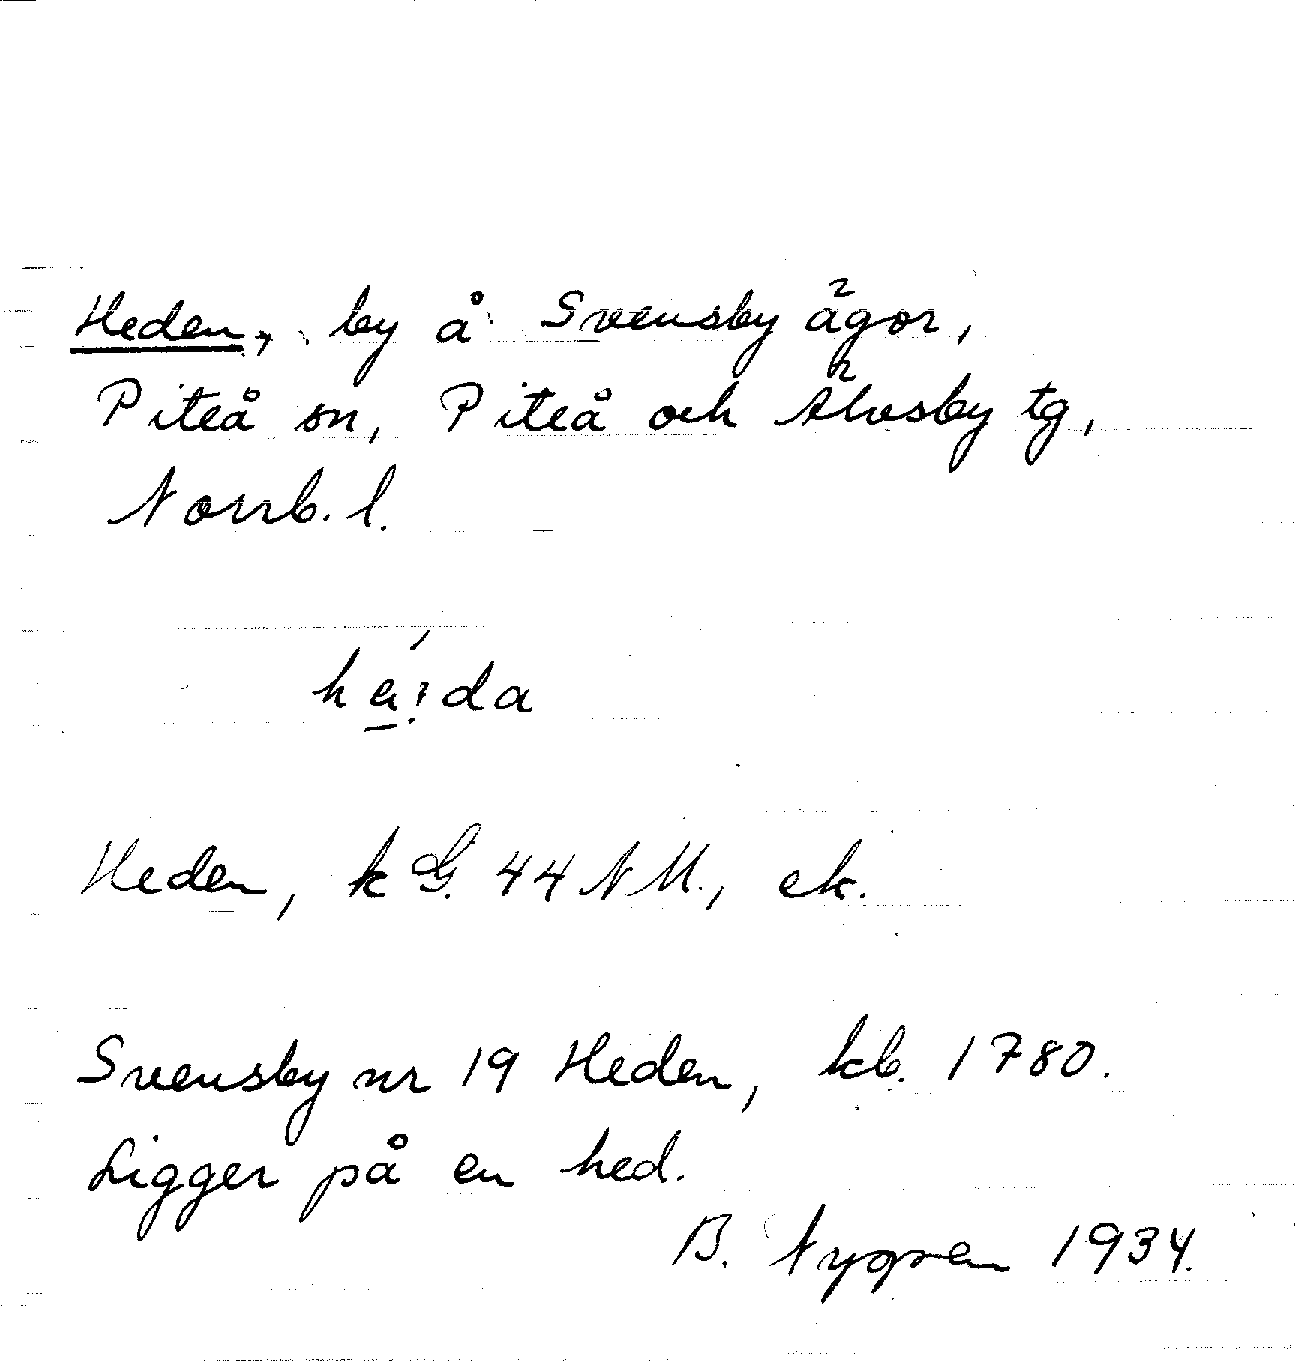 Heden, by å Svensby ägor,
Piteå sn, Piteå och Älvsby tg,
Norrb. l.
Heden, k G. 44 NM., ek.
Svensby nr 19 Heden, kb. 1780.
Ligger på en hed.
B. Nygren 1934.